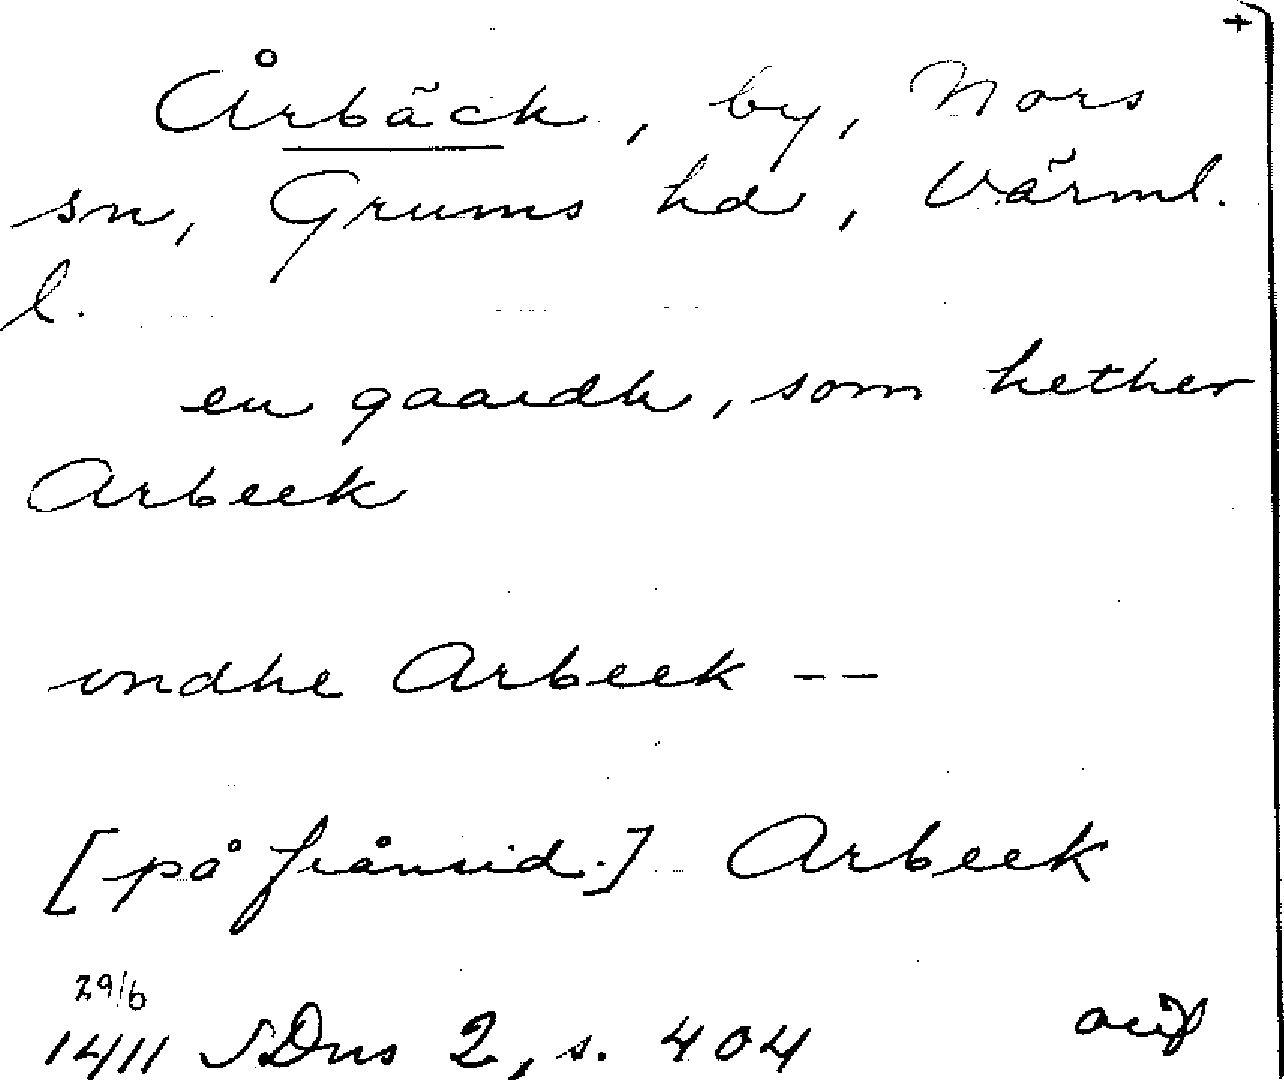 +
Årbäck, by, Nors
sn, Grums hd, Värml.
l.
en gaardh, som hether
Arbeek
vndhe Arbeek --
[på frånsid.] Arbeek
29/6
1411 SDns 2, s. 404